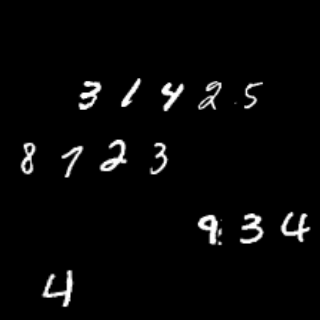 31425
8723
934
4